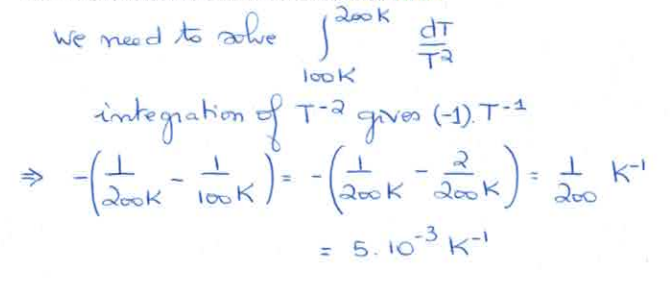 we need to solve ∫_{100K}^{200K} dT/T²
integration of T⁻² gives (-1).T⁻¹
⇒ -(1/200K - 1/100K) = -(1/200K - 2/200K) = 1/200 K⁻¹
= 5.10⁻³ K⁻¹